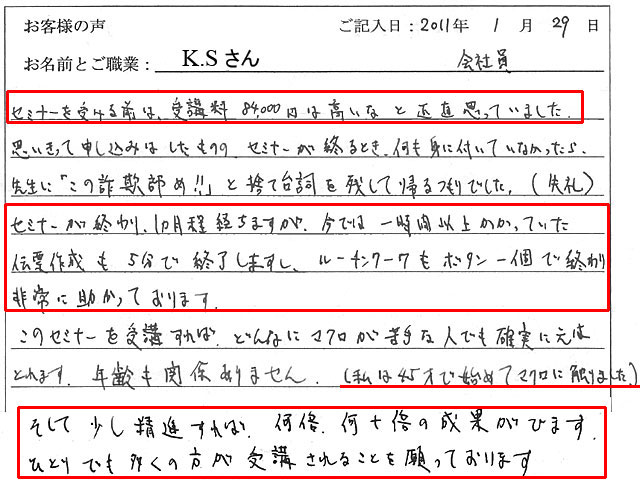 お客様の声 ご記入日：2011年 1月 29日
お名前とご職業： K.Sさん 会社員
セミナーを受ける前は、受講料84,000円は高いなと正直思っていました.
思いきって申し込みはしたものの、セミナーが終るとき、何も身に付いていなかったら、
先生に「この詐欺師め!!」と捨て台詞を残して帰るつもりでした。(失礼)
セミナーが終わり、1ヵ月程経ちますが、今では一時間以上かかっていた
伝票作成も5分で終了しますし、ルーチンワークもボタン一個で終わり
非常に助かっております.
このセミナーを受講すれば、どんなにマクロが苦手な人でも確実に元は
とれます. 年齢も関係ありません. (私は45才で始めてマクロに触りました)
そして少し精進すれば、何倍、何十倍の成果がでます.
ひとりでも多くの方が受講されることを願っております